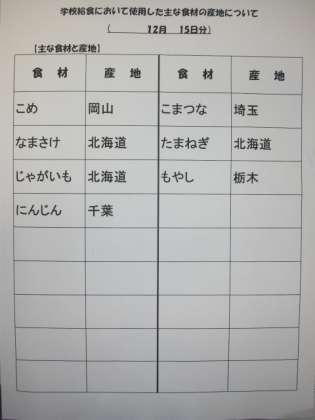 学校給食において使用した主な食材の産地について
(　　　12月　15日分)
【主な食材と産地】
食　材　産　地　食　材　産　地
こめ　岡山　こまつな　埼玉
なまさけ　北海道　たまねぎ　北海道
じゃがいも　北海道　もやし　栃木
にんじん　千葉